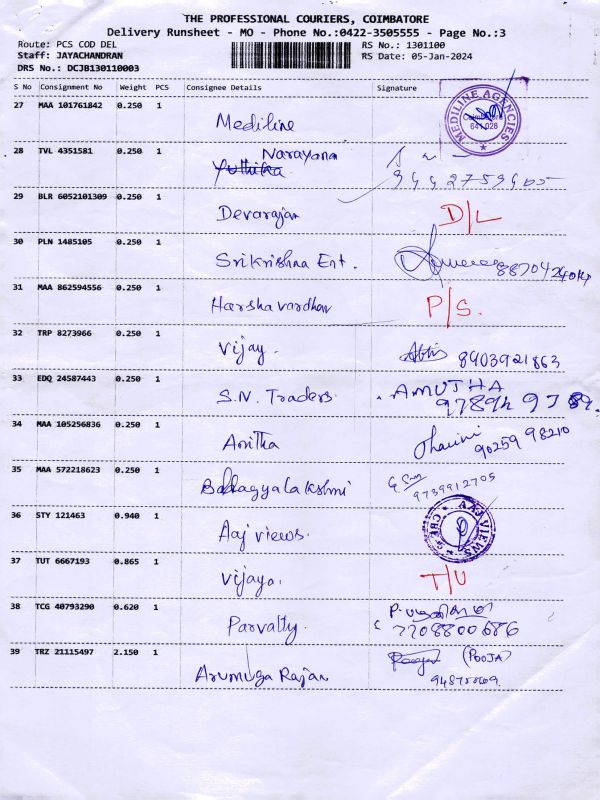 THE PROFESSIONAL COURIERS, COIMBATORE
Delivery Runsheet - MO - Phone No.:0422-3505555 - Page No.:3
Route: PCS COD DEL RS No.: 1301100
Staff: JAYACHANDRAN RS Date: 05-Jan-2024
DRS No.: DCJB130110003
S No Consignment No Weight PCS Consignee Details Signature
27 MAA 101761842 0.250 1 Mediline MEDILINE AGENCIES Coimbatore 641 028
28 TVL 4351581 0.250 1 Narayana
29 BLR 6052101309 0.250 1 Devarajan D/L
30 PLN 1485105 0.250 1 Srikrishna Ent.
31 MAA 862594556 0.250 1 Harshavardhan P/S.
32 TRP 8273966 0.250 1 Vijay. 8903921863
33 EDQ 24587443 0.250 1 S.N. Traders. AMUTHA
34 MAA 105256836 0.250 1 Anitha Dharini 90259 98210
35 MAA 572218623 0.250 1 9739912705
36 STY 121463 0.940 1 Aaj views. AAJ VIEWS CBE
37 TUT 6667193 0.865 1 Vijaya. T/U
38 TCG 40793290 0.620 1 Parvatty. 7708800686
39 TRZ 21115497 2.150 1 Arumuga Rajan (POOJA)